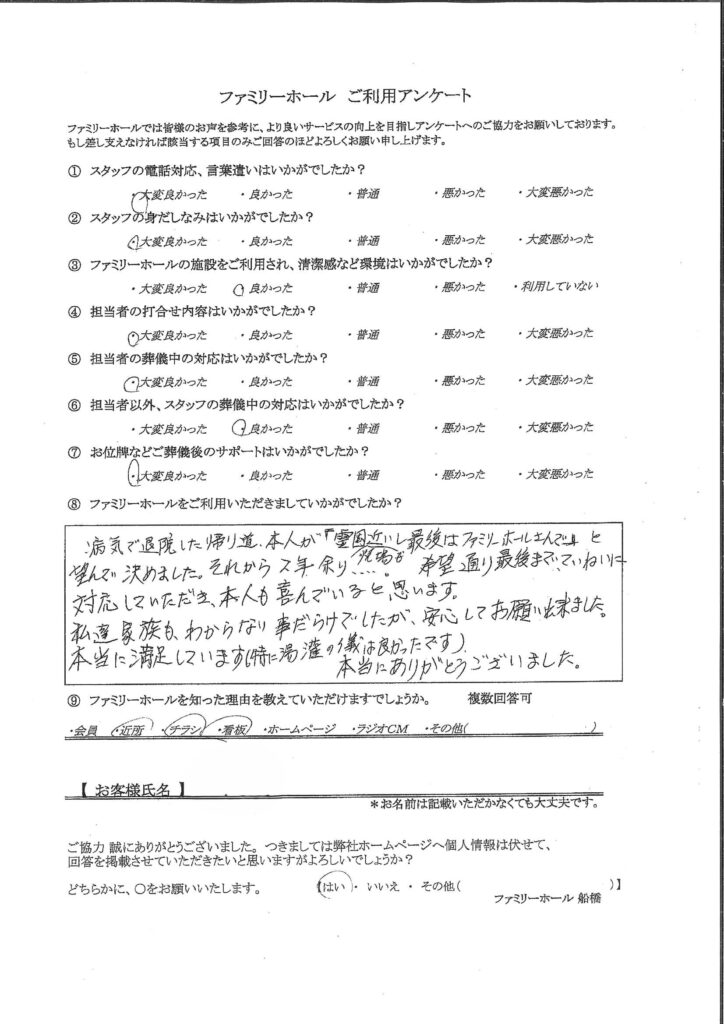 ファミリーホール ご利用アンケート
ファミリーホールでは皆様のお声を参考に、より良いサービスの向上を目指しアンケートへのご協力をお願いしております。
もし差し支えなければ該当する項目のみご回答のほどよろしくお願い申し上げます。
① スタッフの電話対応、言葉遣いはいかがでしたか？
・大変良かった ・良かった ・普通 ・悪かった ・大変悪かった
② スタッフの身だしなみはいかがでしたか？
・大変良かった ・良かった ・普通 ・悪かった ・大変悪かった
③ ファミリーホールの施設をご利用され、清潔感など環境はいかがでしたか？
・大変良かった ・良かった ・普通 ・悪かった ・利用していない
④ 担当者の打合せ内容はいかがでしたか？
・大変良かった ・良かった ・普通 ・悪かった ・大変悪かった
⑤ 担当者の葬儀中の対応はいかがでしたか？
・大変良かった ・良かった ・普通 ・悪かった ・大変悪かった
⑥ 担当者以外、スタッフの葬儀中の対応はいかがでしたか？
・大変良かった ・良かった ・普通 ・悪かった ・大変悪かった
⑦ お位牌などご葬儀後のサポートはいかがでしたか？
・大変良かった ・良かった ・普通 ・悪かった ・大変悪かった
⑧ ファミリーホールをご利用いただきましていかがでしたか？
病気で退院した帰り道、本人が『霊園近いし最後はファミリーホールさんで』と
望んで決めました。それから2年余り 希望通り最後までていねいに
対応していただき、本人も喜んでいると思います。
私達家族も、わからない事だらけでしたが、安心してお願い出来ました。
本当に満足しています(特に湯灌の儀は良かったです)
本当にありがとうございました。
⑨ ファミリーホールを知った理由を教えていただけますでしょうか。 複数回答可
・会員 ・近所 ・チラシ ・看板 ・ホームページ ・ラジオCM ・その他( )
【 お客様氏名 】
＊お名前は記載いただかなくても大丈夫です。
ご協力 誠にありがとうございました。つきましては弊社ホームページへ個人情報は伏せて、
回答を掲載させていただきたいと思いますがよろしいでしょうか？
どちらかに、〇をお願いいたします。 【はい ・ いいえ ・ その他( )】
ファミリーホール 船橋